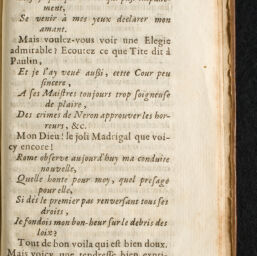 ment,
Se venir à mes yeux declarer mon
amant.
Mais voulez-vous voir une Elegie
admirable? Ecoutez ce que Tite dit à
Paulin,
Et je l'ay veuë aussi, cette Cour peu
sincere,
A ses Maistres toujours trop soigneuse
de plaire,
Des crimes de Neron approuver les hor-
reurs, &c.
Mon Dieu! le joli Madrigal que voi-
cy encore!
Rome observe aujourd'huy ma conduite
nouvelle,
Quelle honte pour moy, quel presage
pour elle,
Si dés le premier pas renversant tous ses
droits,
Je fondois mon bon-heur sur le debris des
loix?
Tout de bon voila qui est bien doux.
Mais voicy une tendresse bien